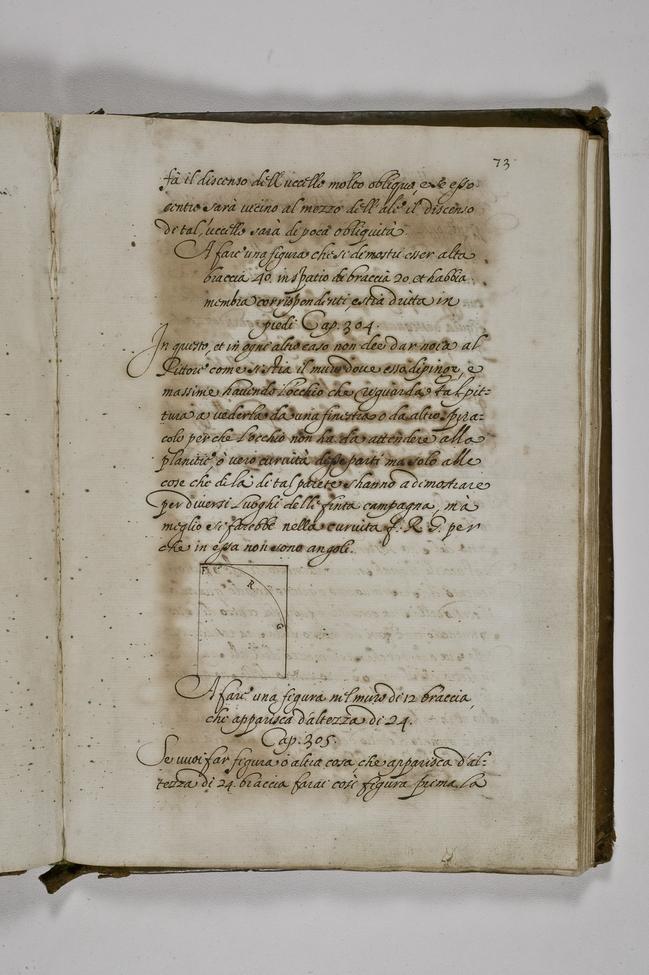 73
fà il discenso dell'uccello molto obliquo, e se esso
centro sarà vicino al mezzo dell'ale il discenso
de tal'uccello sarà di poca obliquità.
A fare una figura che si demostri esser alta
braccia 40. in spatio de braccia 20. et habbia
membra corrispondenti, e stia dritta in
piedi Cap. 304.
In questo, et in ogni altro caso non dee dar noia al
Pittore come si stia il muro dove esso dipinge, e
massime havendo l'occhio che risguarda tal pit-
tura a vederla da una finestra o da altro spira-
colo perche l'occhio non ha da attendere alla
planitie, o vero curvità d'esse pareti ma solo alle
cose che di là di tal parete s'hanno a dimostrare
per diversi luoghi della finta campagna, mà
meglio si farebbe nella curvita f. R. G. per
che in essa non sono angoli.
F
R
G
A fare una figura nel muro di 12 braccia,
che apparisca d'altezza di 24.
Cap. 305.
Se vuoi far figura o altra cosa che apparisca d'al-
tezza di 24. braccia farai così figura prima la